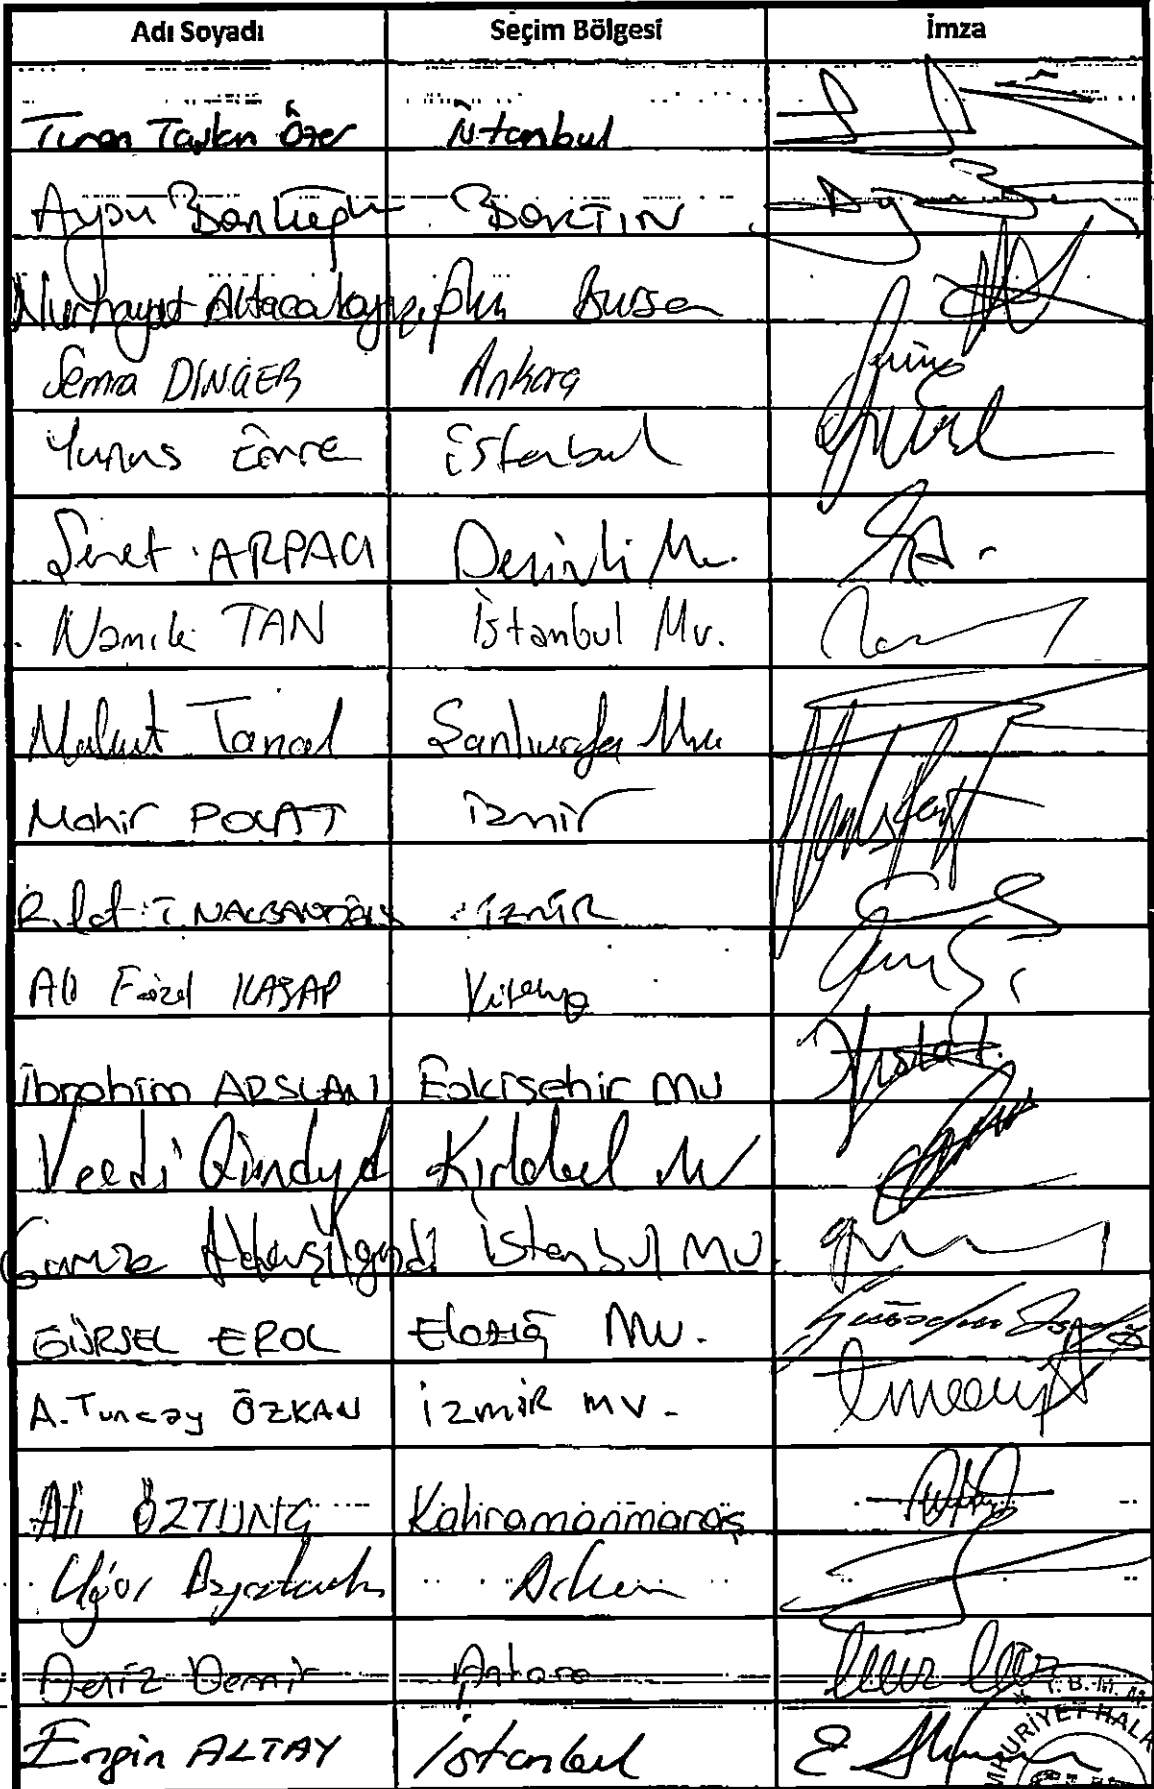 Adı Soyadı Seçim Bölgesi İmza
Turan Taşkın Özer İstanbul
Aysu Bankoğlu BARTIN
Nurhayat Altaca Kayışoğlu Bursa
Semra DİNÇER Ankara
Yunus Emre İstanbul
Şeref ARPACI Denizli Mv.
Namık TAN İstanbul Mv.
Mahmut Tanal Şanlıurfa Mv.
Mahir POLAT İzmir
Rıfat T. NALBANTOĞLU İZMİR
Ali Fazıl KASAP Kütahya
İbrahim ARSLAN Eskişehir MV
Vecdi Gündoğdu Kırklareli Mv
Gamze Akkuş İlgezdi İstanbul MV.
GÜRSEL EROL Elazığ MV.
A. Tuncay ÖZKAN İZMİR MV.
Ali ÖZTUNÇ Kahramanmaraş
Uğur Bayraktutan Artvin
Deniz Demir Ankara
Engin ALTAY İstanbul
T.B.M.M.